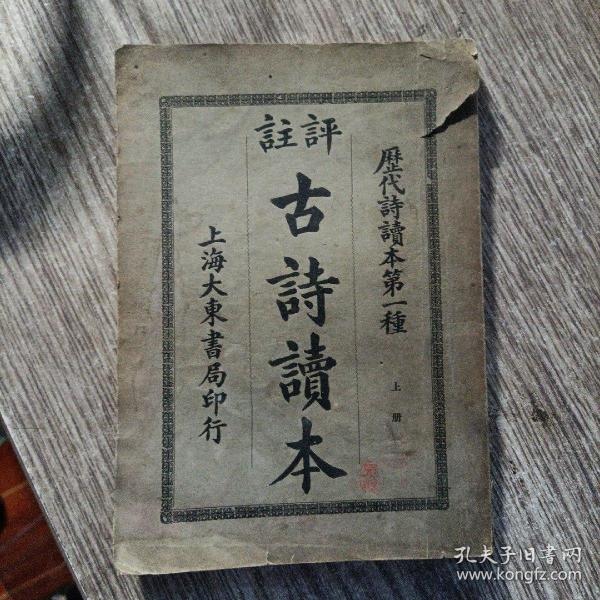 歷代詩讀本第一種
上册
評註
古詩讀本
上海大東書局印行
孔夫子旧书网
www.kongfz.com